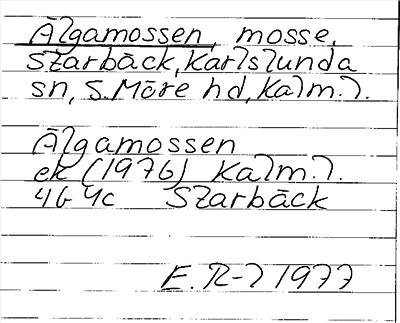 Älgamossen, mosse,
Starbäck, Karlslunda
sn, S. Möre hd, Kalm. l.
Älgamossen
ek (1976) Kalm. l.
4G 4c Starbäck
E. R-l 1977